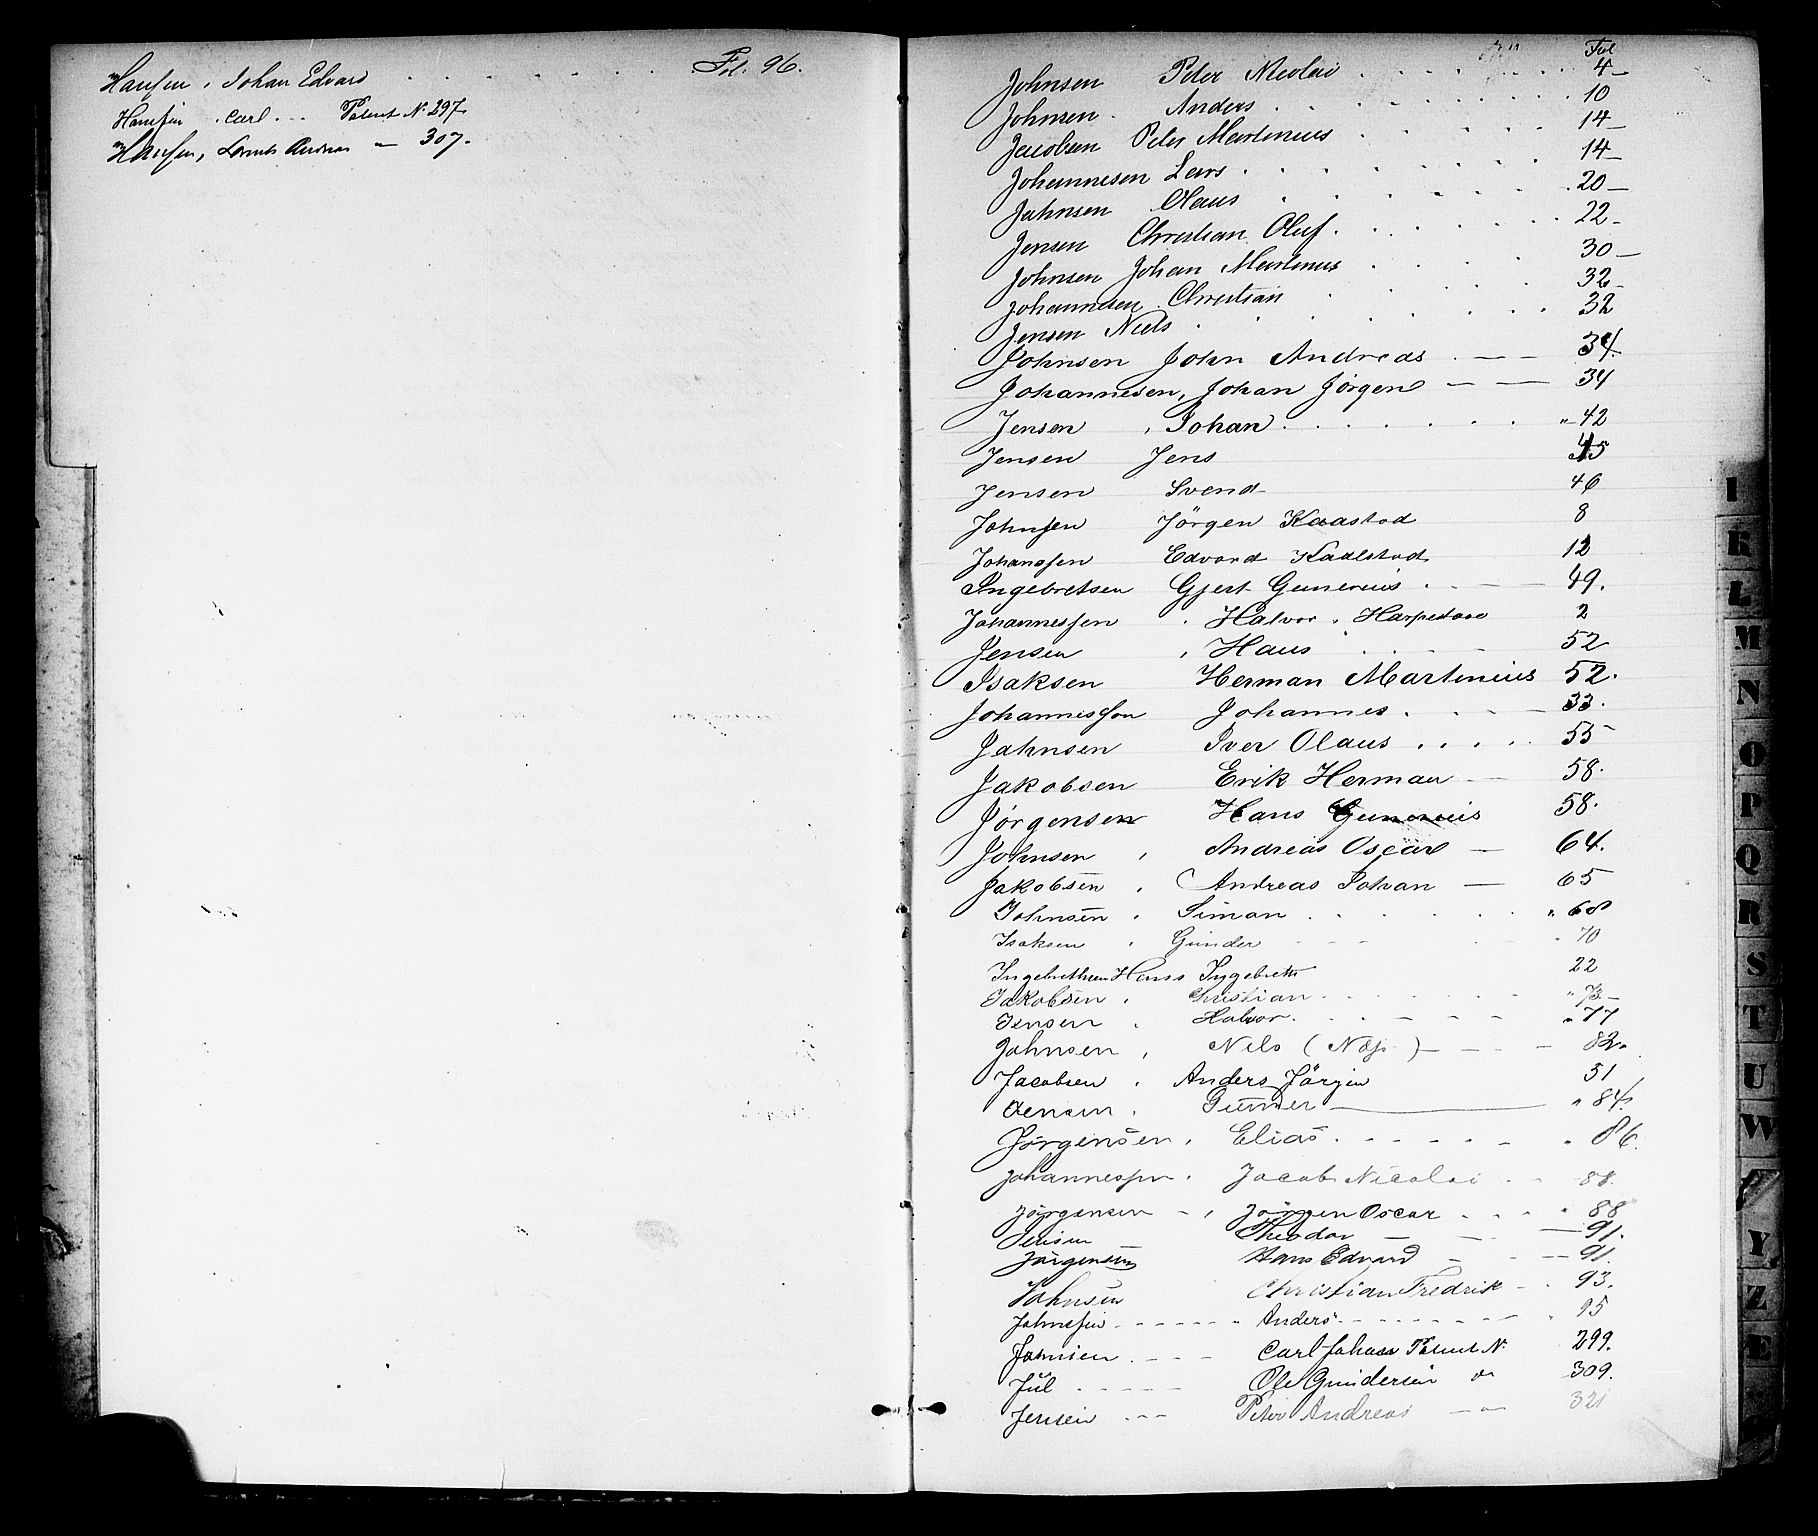 Hansen, Johan Edvard . . . . . . . . Fol. 96.
Hansen . Carl . . . Patent N. 297
Hansen, Andreas — 307.
Fol
Johnsen Peter Nicolai . . . . . . 4 —
Johnsen . Anders . . . . . . . 10
Jacobsen Peter Martenius . . . . . 14 —
Johannesen Lars . . . . . . . 14 —
Jahnsen Claus . . . . . . . 20 —
Jensen Christian Oluf . . . . . . 22 -
Johnsen Johan Martenus . . . . 30 —
Johannesen Christian . . . . 32 -
Jensen Niels . . . . . . . 32
Johnsen John Andreas . — — 34.
Johannesen, Johan Jörgen — — 34
Jensen , Johan . . . . . . . " 42
Jensen Jens 45
Jensen Svend 46
Johnsen Jörgen Kaastad 8
Johansen Edvard Kaalstad 12
Ingebretsen Gjert Gunerius . . — — 49.
Johannessen . Halvor . 2
Jensen , Hans . . — . — 52
Isaksen Herman Martenius 52.
Johannessen Johannes . . — — 33.
Jahnsen Iver Olaus . . . . . 55
Jakobsen Erik Herman — 58.
Jörgensen Hans Gunerius 58.
Johnsen , Andreas Oscar — 64.
Jakobsen , Andreas Johan — 65
Johnsen , Simon . . . . . . " 68
Isaksen , Gunder — — — " 70
Ingebrethsen Hans Ingebreth 22
Jakobsen , Christian . . . . . . " 73 —
Jensen , Halvor . — . — — — " 77
Johnsen , Nils ( ) — — — 82.
Jacobsen , Anders Jörgen 51
Jensen , Gunner ——— " 84.
Jörgensen , Elias . - - - - - " 86.
Johannessen , Jacob Nicolai . . — 88.
Jörgensen - , Jörgen Oscar . . . " 88
Jensen Theodor — — — 91.
Jörgensen Hans Edvard — - - — 91.
Johnsen Christian Fredrik — . 93.
Johnsen - - - - - - Anders - - - - - - - " 95
Jahnsen . - - - Carl Johan Patent N. 299.
Jül - - - - - Ole Gundersen do 309.
Jensen - - - Peter Andreas — 321
I
K
L
M
N
O
P
Q
R
S
T
U
W
Y
Z